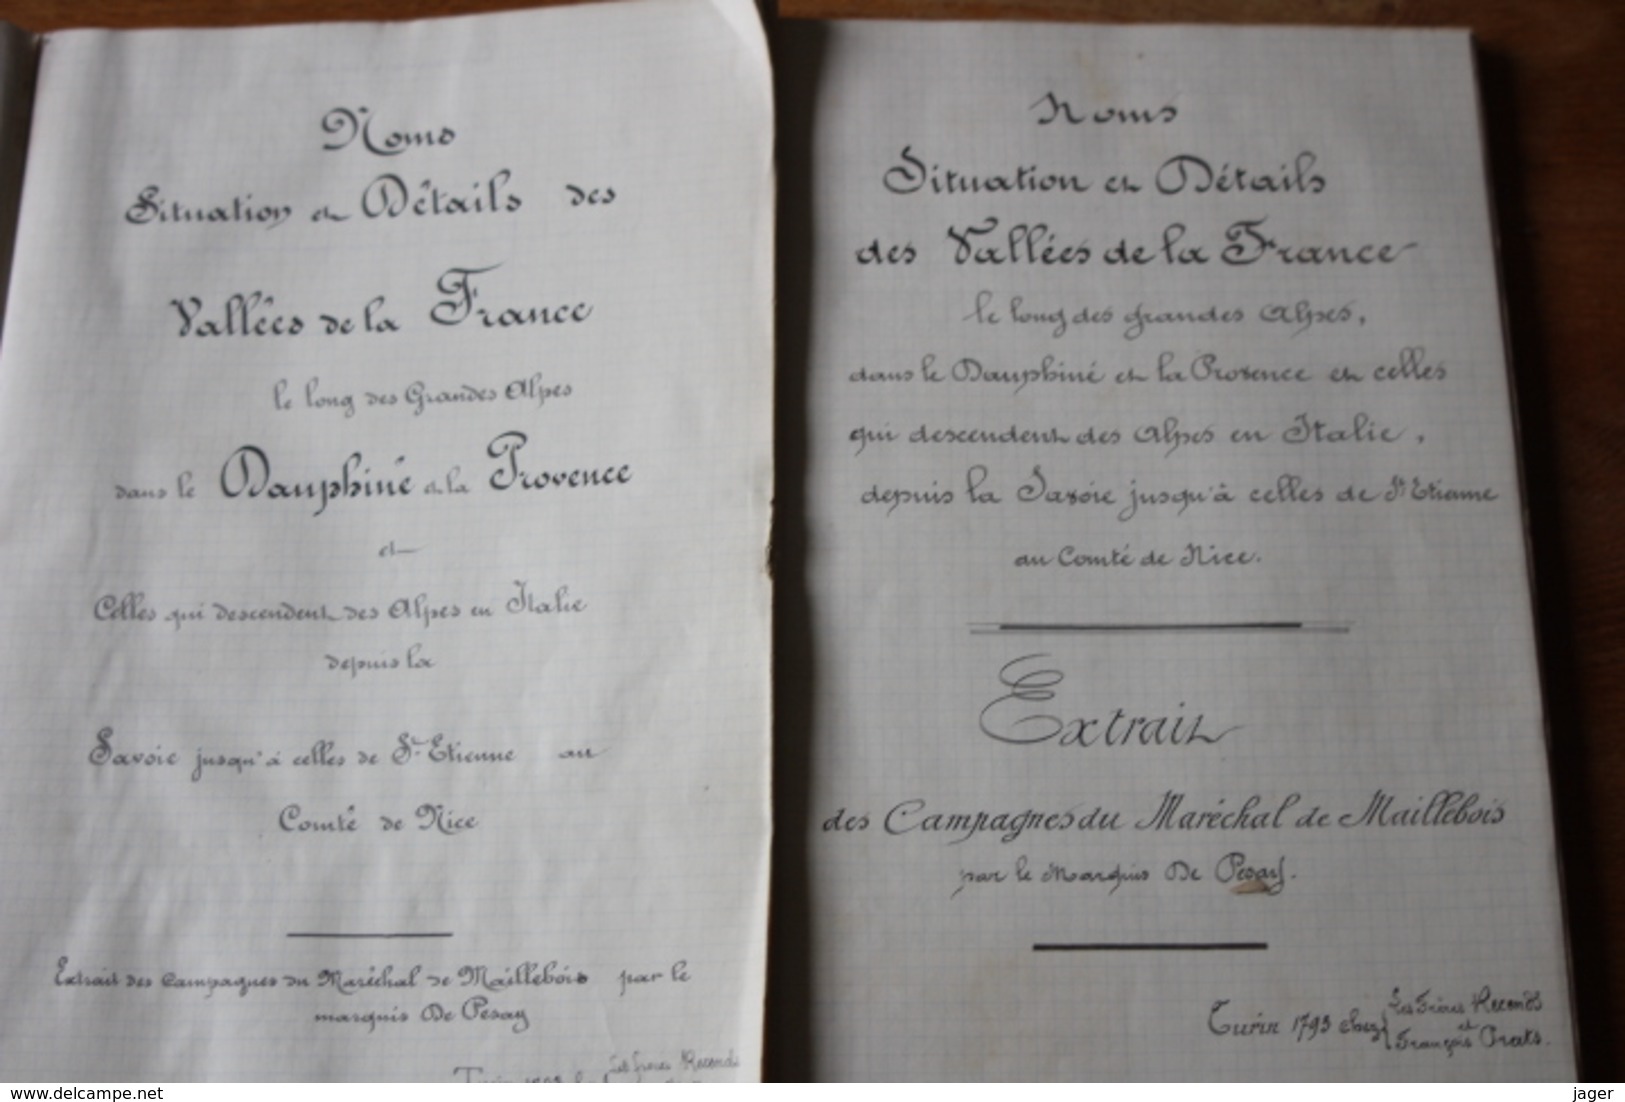 Noms
Situation et Détails des
Vallées de la France
le long des Grandes Alpes
dans le Dauphiné et la Provence
et
Celles qui descendent des Alpes en Italie
depuis la
Savoie jusqu'à celles de St Etienne au
Comté de Nice
Extrait des Campagnes du Maréchal de Maillebois par le
marquis De Pesay
Les frères Recends
Noms
Situation et Détails
des Vallées de la France
le long des grandes Alpes,
dans le Dauphiné et la Provence et celles
qui descendent des Alpes en Italie,
depuis la Savoie jusqu'à celles de St Etienne
au Comté de Nice.
Extrait
des Campagnes du Maréchal de Maillebois
par le Marquis De Pesay.
Turin 1793 chez { Les Frères Recends
et
François Prats.
www.delcampe.net
jager